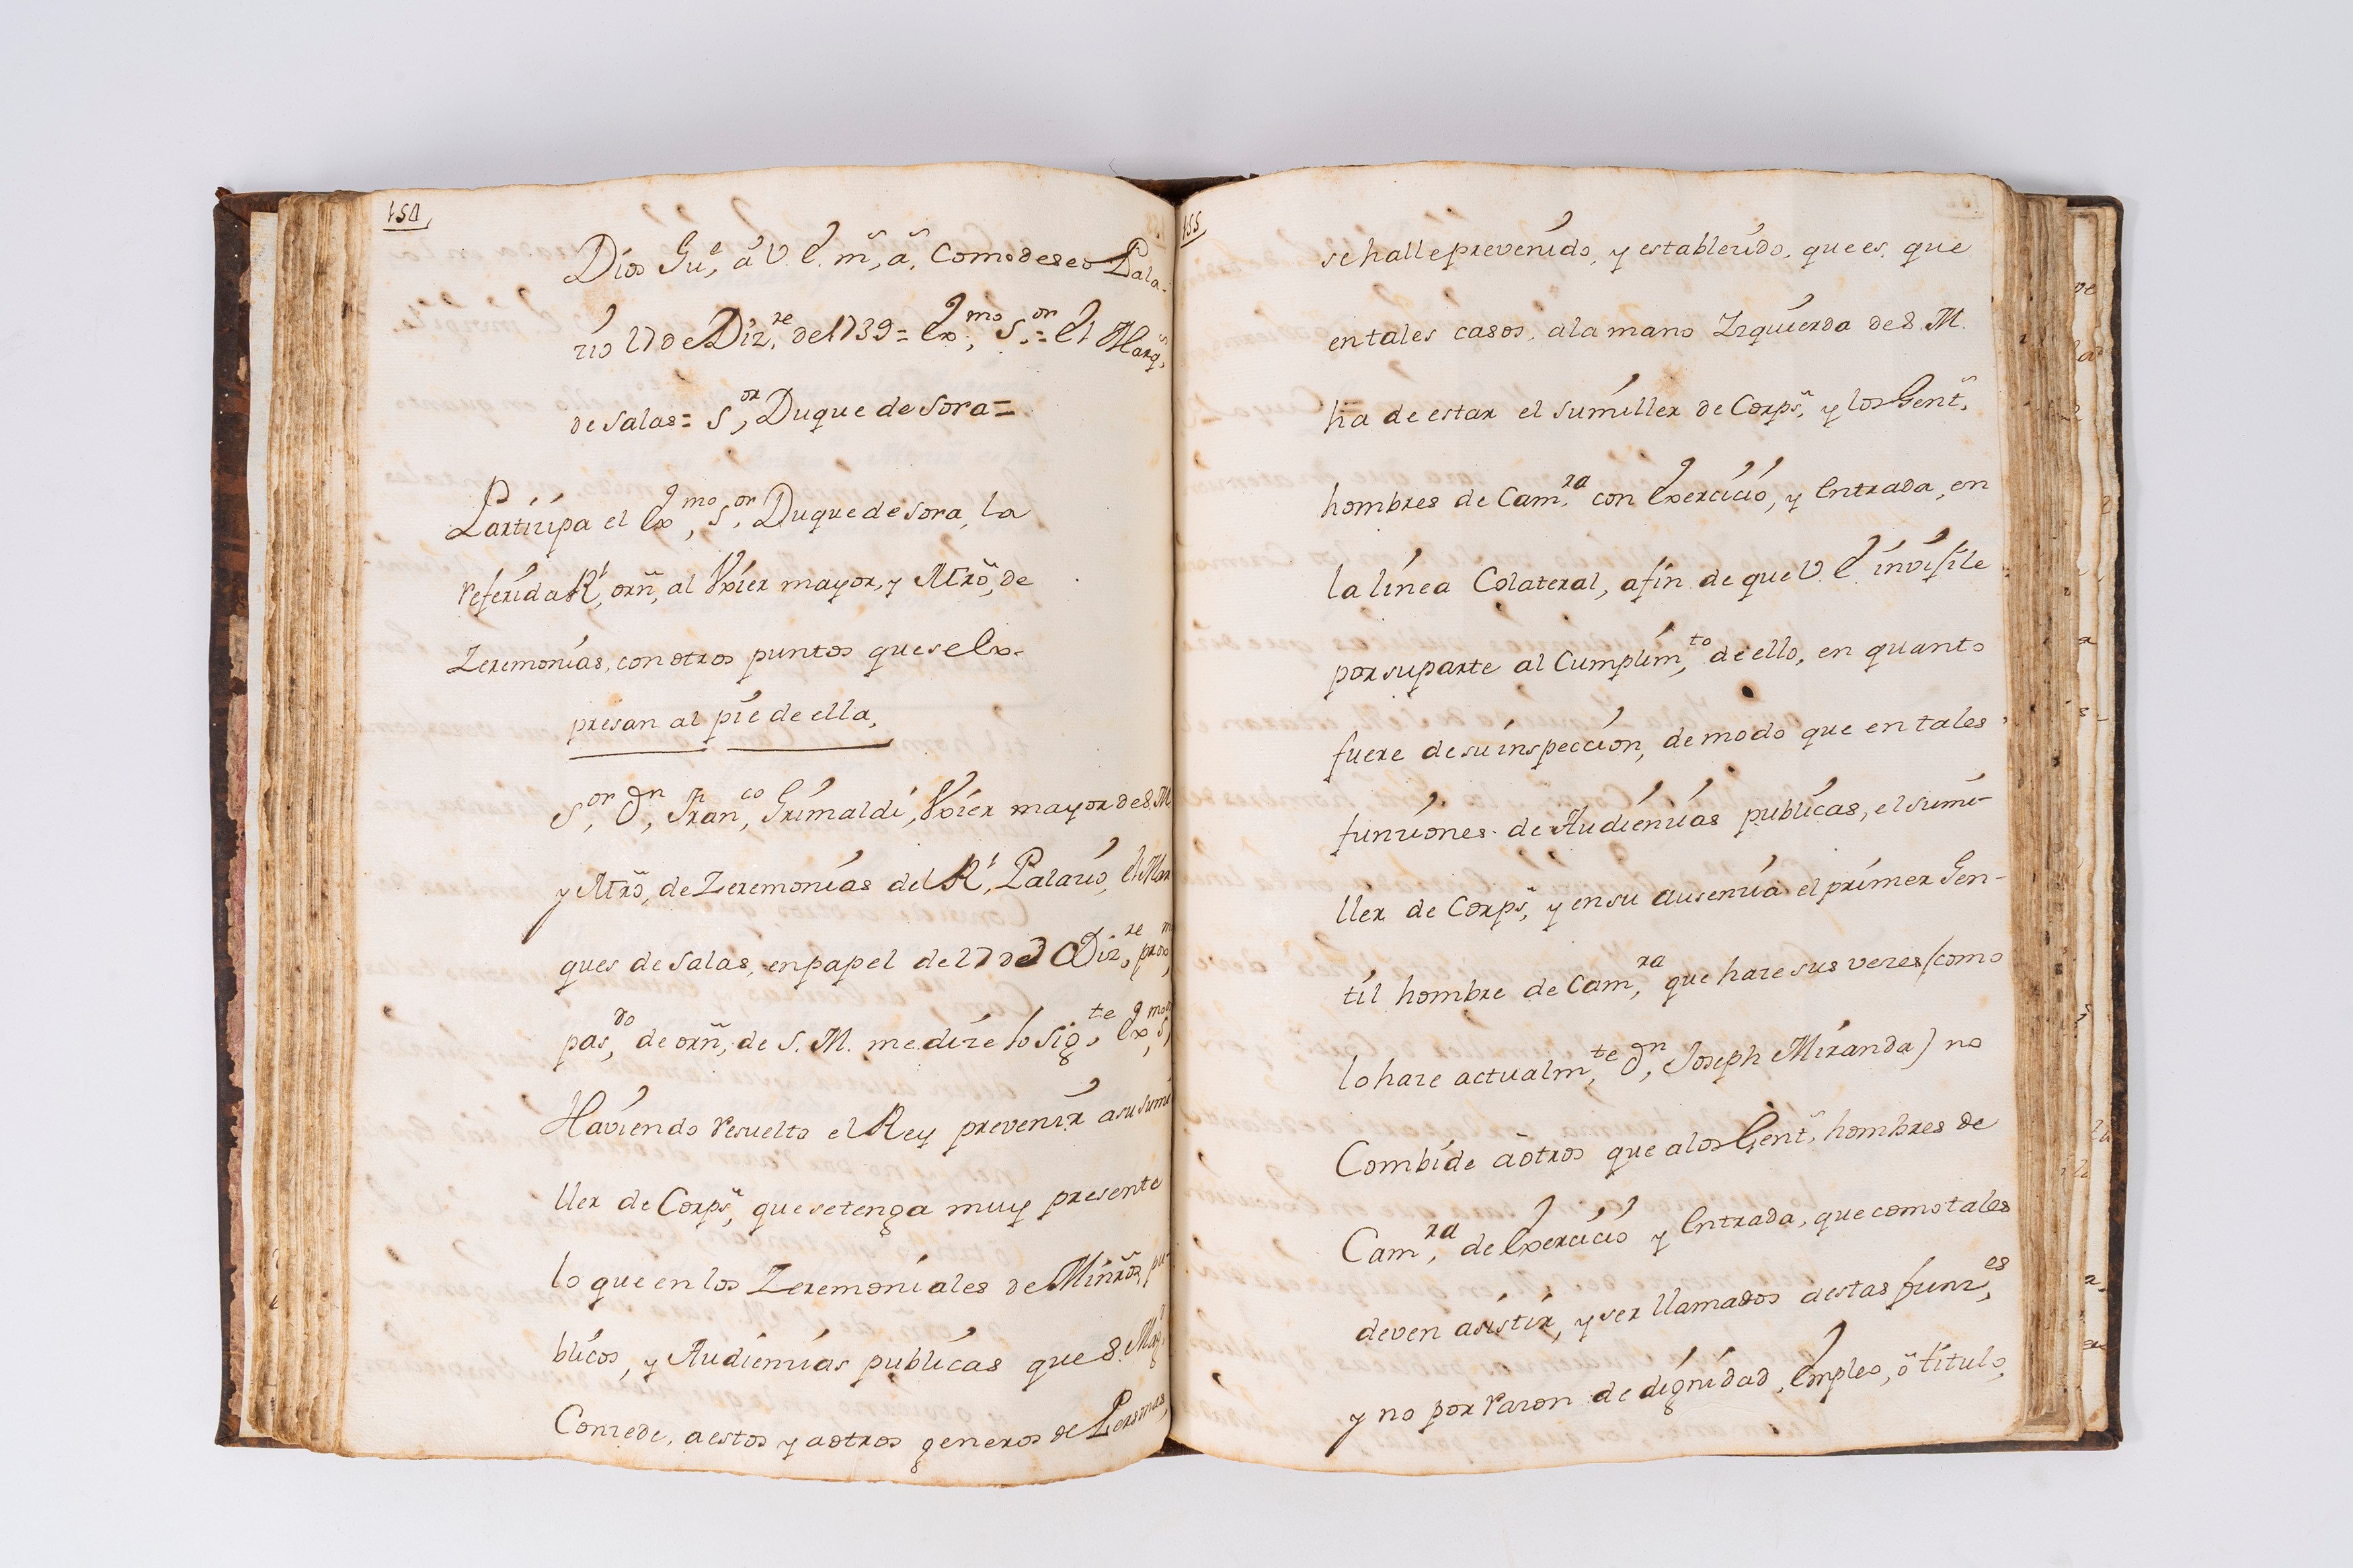 154,
Dios Gu,e á V. E. m,s a,s Como deseo Pala-
cio 27 de Diz,re de 1739 = Ex,mo S,or = El Marq,s
de Salas = S,or Duque de Sora =
Participa el Ex,mo S,or Duque de Sora, la
referida Rl, orñ, al Vxier mayor, y Mtrõ, de
Zeremonias, con otros puntos que se Ex-
presan al pie de ella,
S,or Dn, Fran,co Grimaldi, Vxier mayor de S. M
y Mtrõ, de Zeremonias del Rl, Palacio, el Mar
ques de Salas, en papel de 27 de Diz,re prox,m
pas,do de orñ, de S. M. me dize lo sig,te Ex,mo S,
Haviendo resuelto el Rey prevenir a su sumi
ller de Corps, que se tenga muy presente
lo que en los Zeremoniales de Minrõs, pu
blicos, y Audiencias publicas que S. Mag,
Concede, a estos y a otros generos de Personas,
155
se halle prevenido, y establecido, que es, que
en tales casos, a la mano Izquierda de S. M.
ha de estar el sumiller de Corps, y los Gent,s
hombres de Cam,ra con Exercicio, y Entrada, en
la linea Colateral, a fin de que V. E. invigile
por su parte al Cumplim,to de ello, en quanto
fuere de su inspeccion, de modo que en tales
funciones de Audiencias publicas, el sumi-
ller de Corps, y en su ausencia el primer Gen-
til hombre de Cam,ra que hace sus veces (como
lo hace actualm,te Dn, Joseph Miranda) no
Combide á otros que a los Gent,s hombres de
Cam,ra de Exercicio y Entrada, que como tales
deven asistir, y ser llamados a estas func,es
y no por razon de dignidad, Empleo, õ titulo,